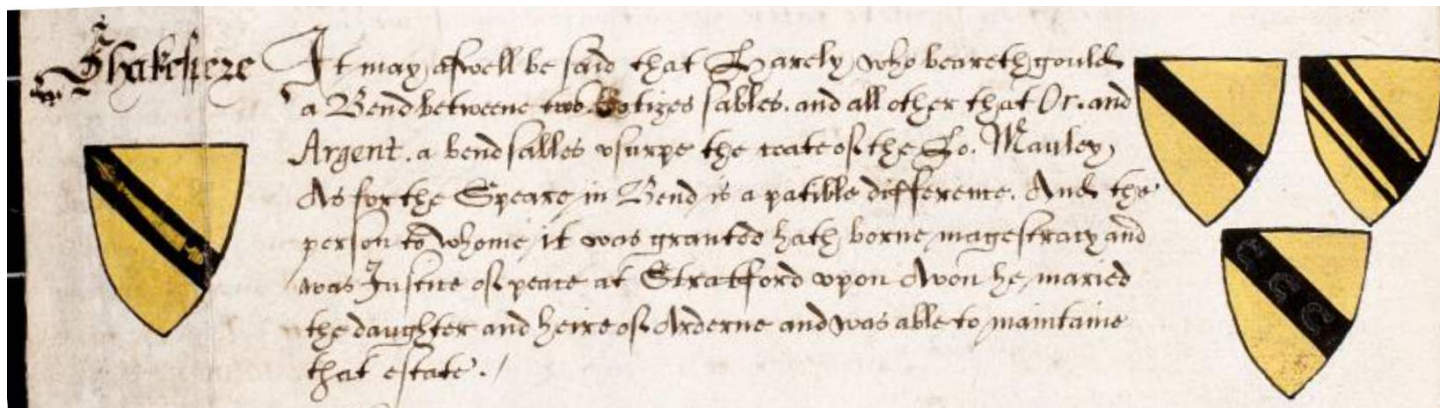 Shakespere
It may aswell be said that Harely who beareth gould
a Bend betweene two Cotizes sables. and all other that Or. and
Argent. a bend sables vsurpe the coate of the Lo. Mauley,
As for the Speare in Bend is a patible difference. And the
person to whome it was granted hath borne magestracy and
was Justice of peace at Stratford vpon Avon he maried
the daughter and heire of Arderne and was able to maintaine
that estate.